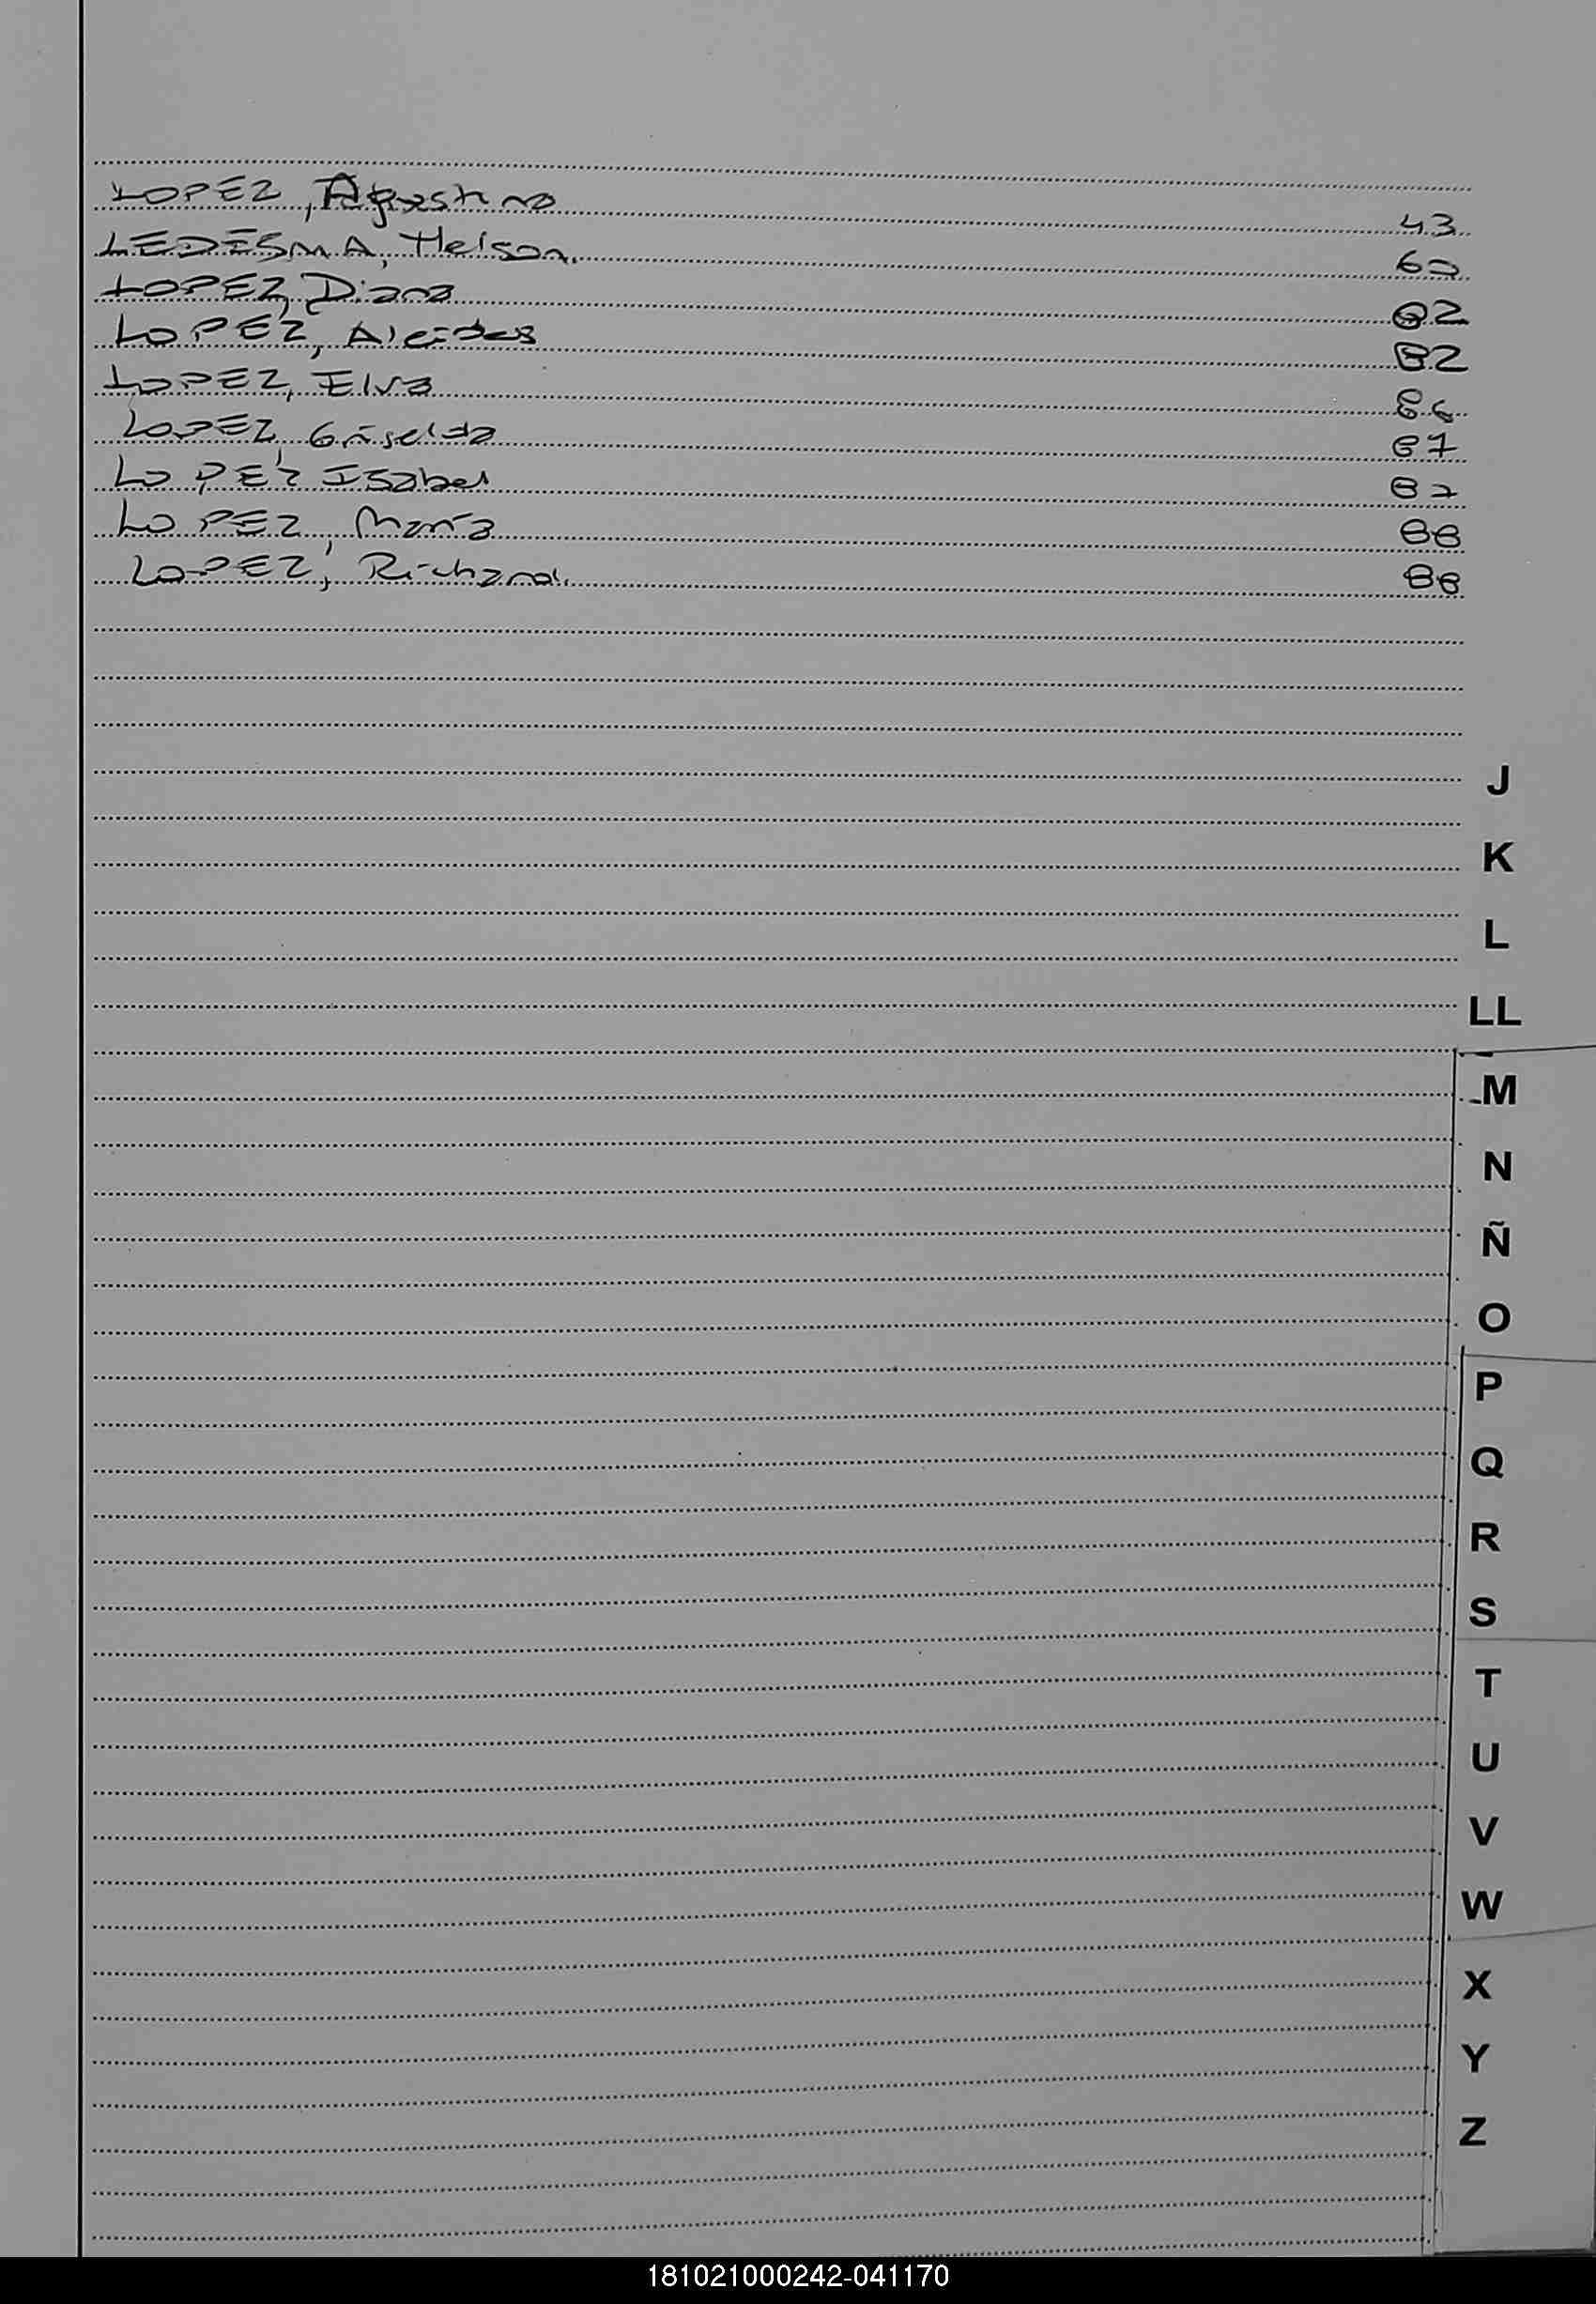 LOPEZ, Agustina 43
LEDESMA, Nelson. 62
LOPEZ, Diana 82
LOPEZ, Alcides 82
LOPEZ, Elva 86
LOPEZ, Griselda 87
LOPEZ Isabel 87
LOPEZ, María 88
LOPEZ, Richard. 88
J
K
L
LL
M
N
Ñ
O
P
Q
R
S
T
U
V
W
X
Y
Z
181021000242-041170